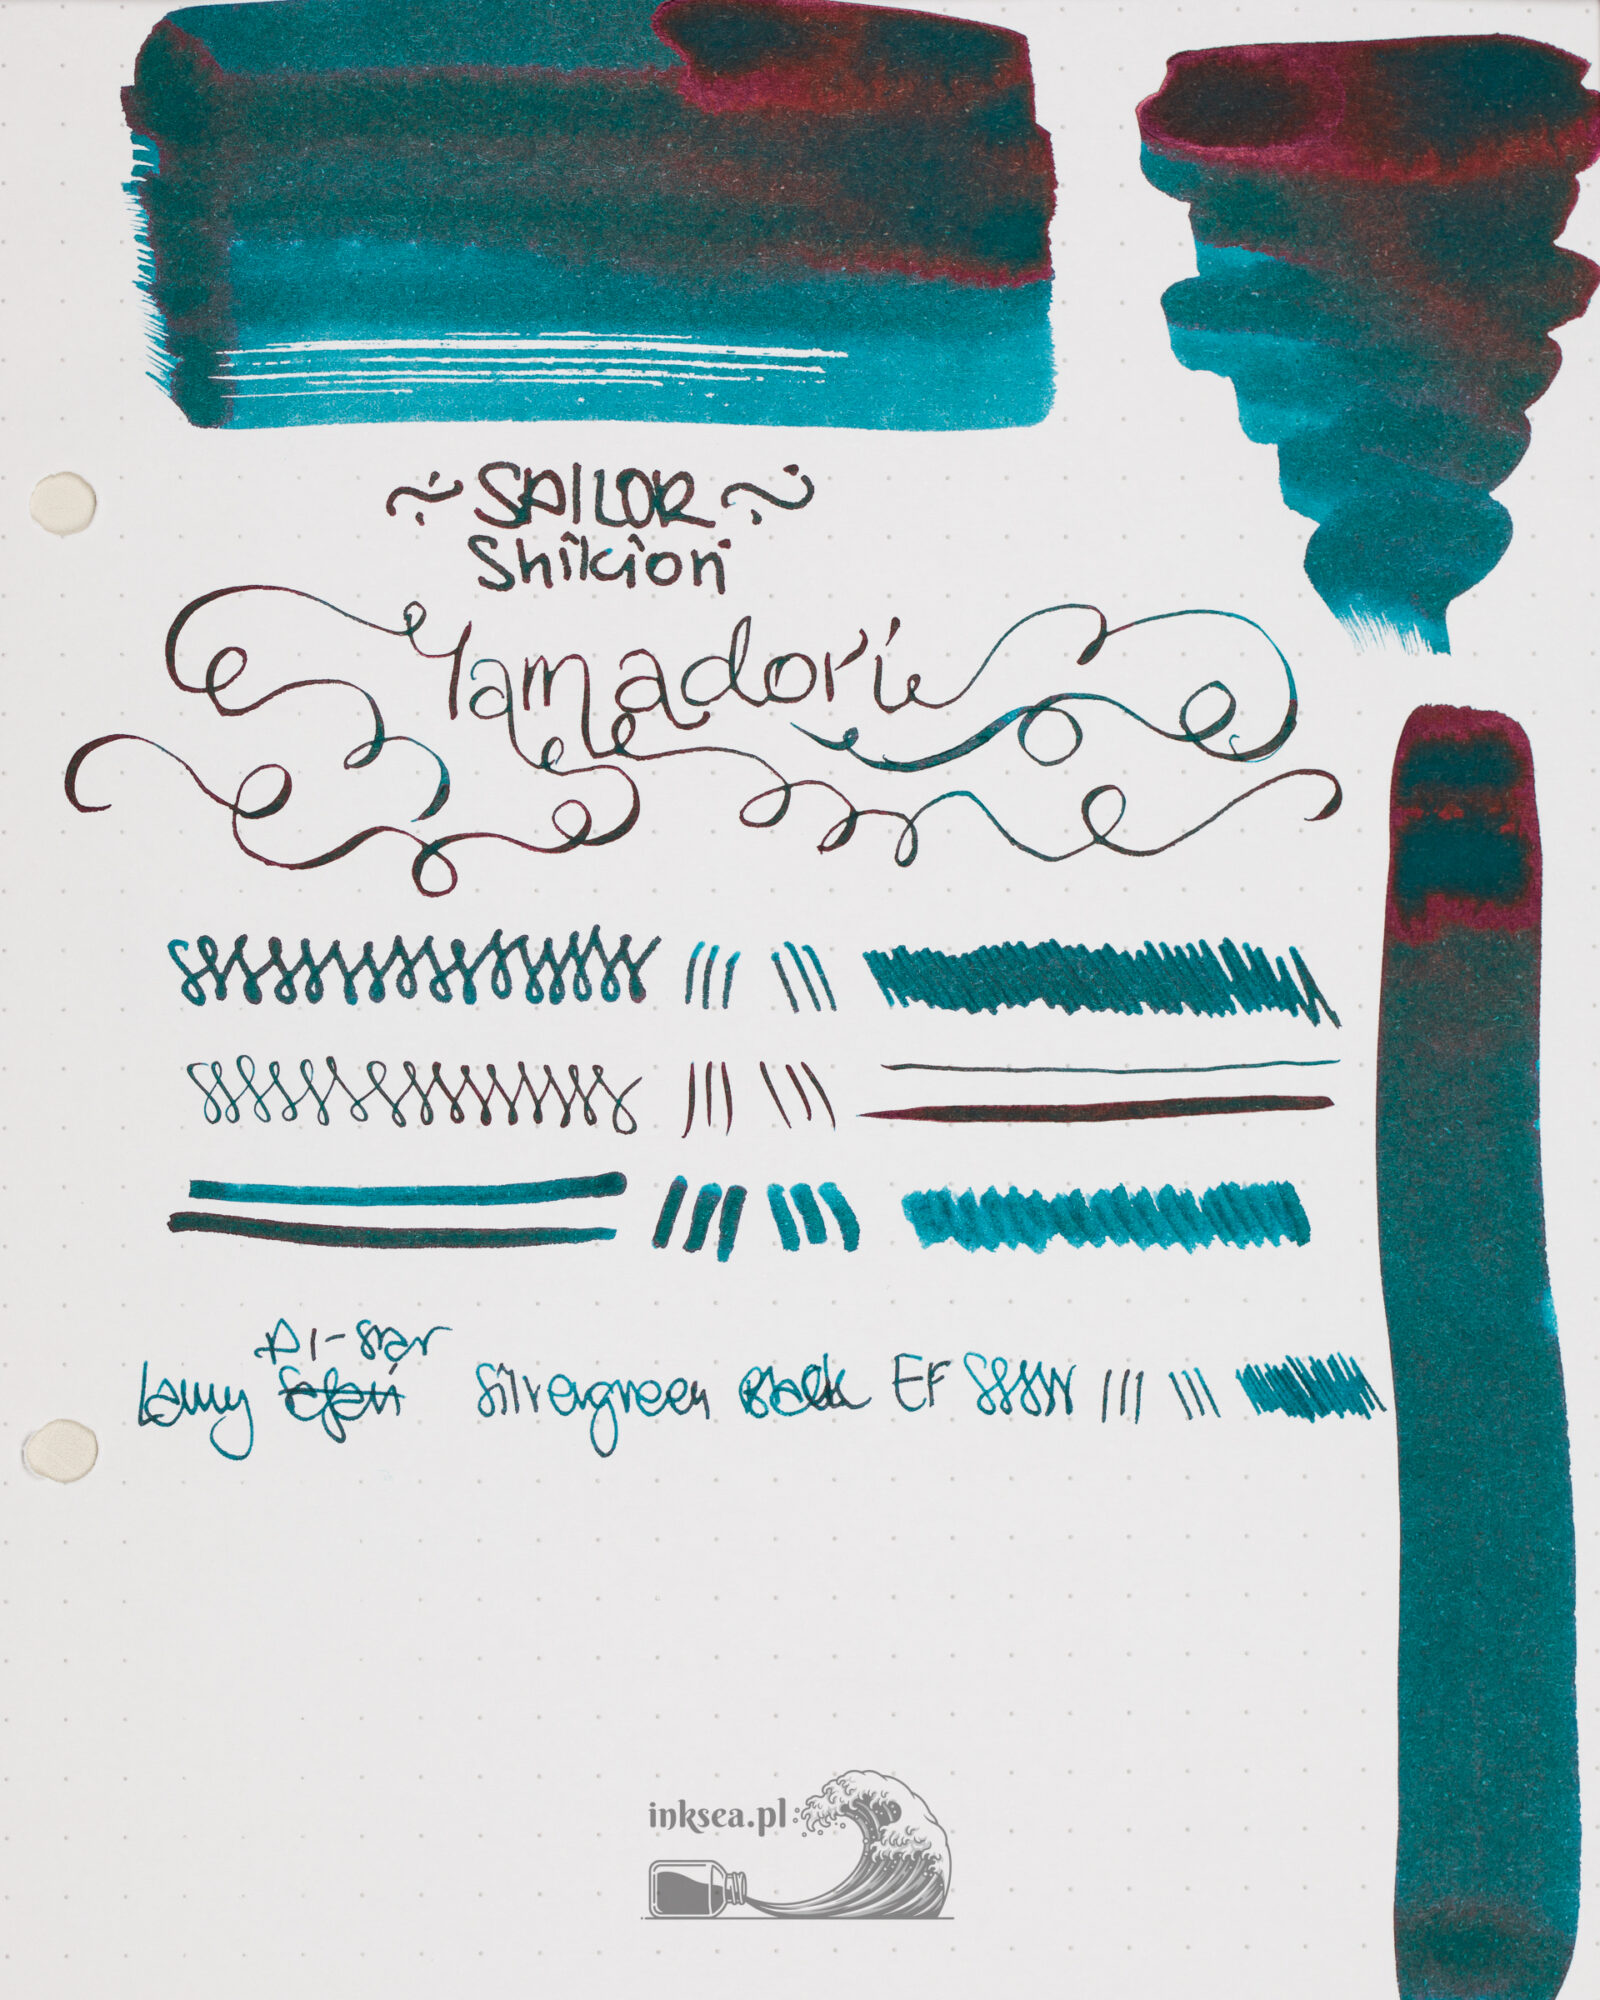 ~ SAILOR ~
Shikiori
Yamadori
Al-star
Lamy Safari Silvergreen Black EF
inksea.pl